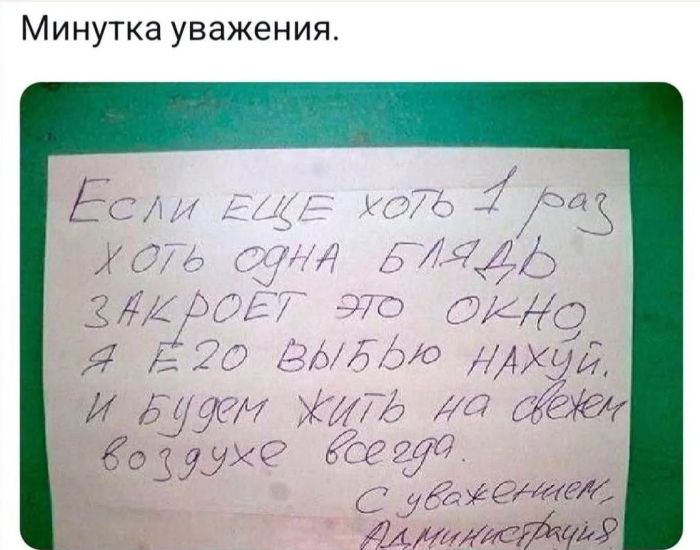 Минутка уважения.
Если ЕЩЕ хоть 1 раз
хоть одна БЛЯДЬ
ЗАКРОЕТ это ОКНО,
я ЕГО ВЫБЬЮ НАХУЙ.
и Будем ЖИТЬ на свежем
воздухе всегда.
С уважением,
Администрация